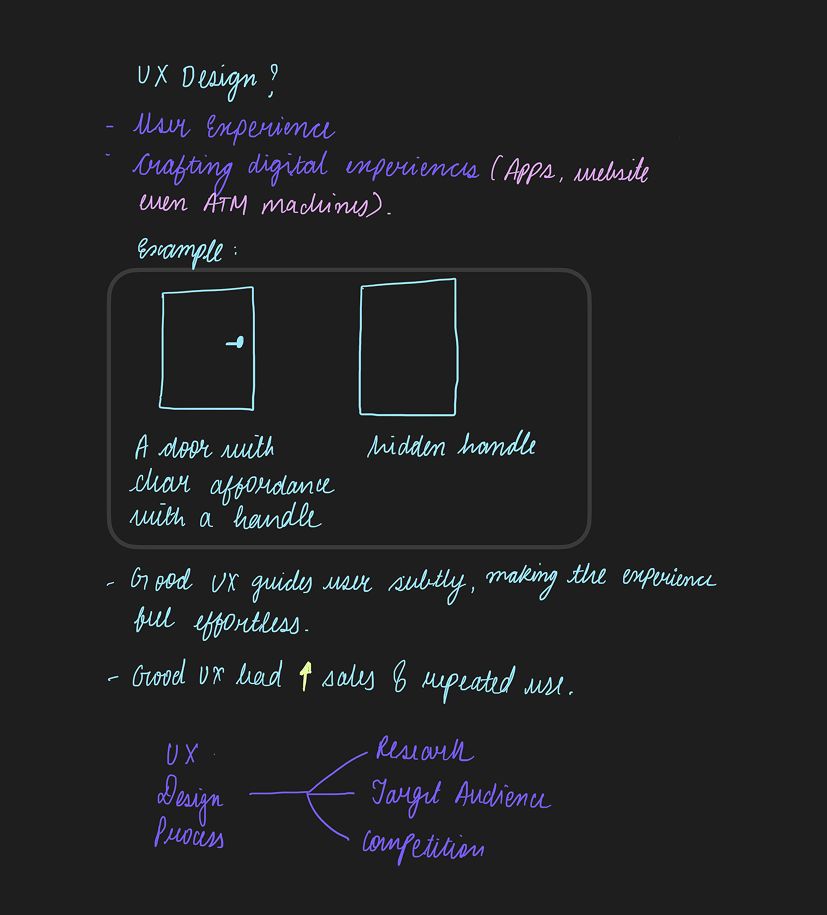 UX Design?
- User Experience
- Crafting digital experiences (Apps, website
even ATM machines).
Example:
A door with
clear affordance
with a handle
hidden handle
- Good UX guides user subtly, making the experience
feel effortless.
- Good UX lead ↑ sales & repeated use.
UX
Design
Process
Research
Target Audience
Competition